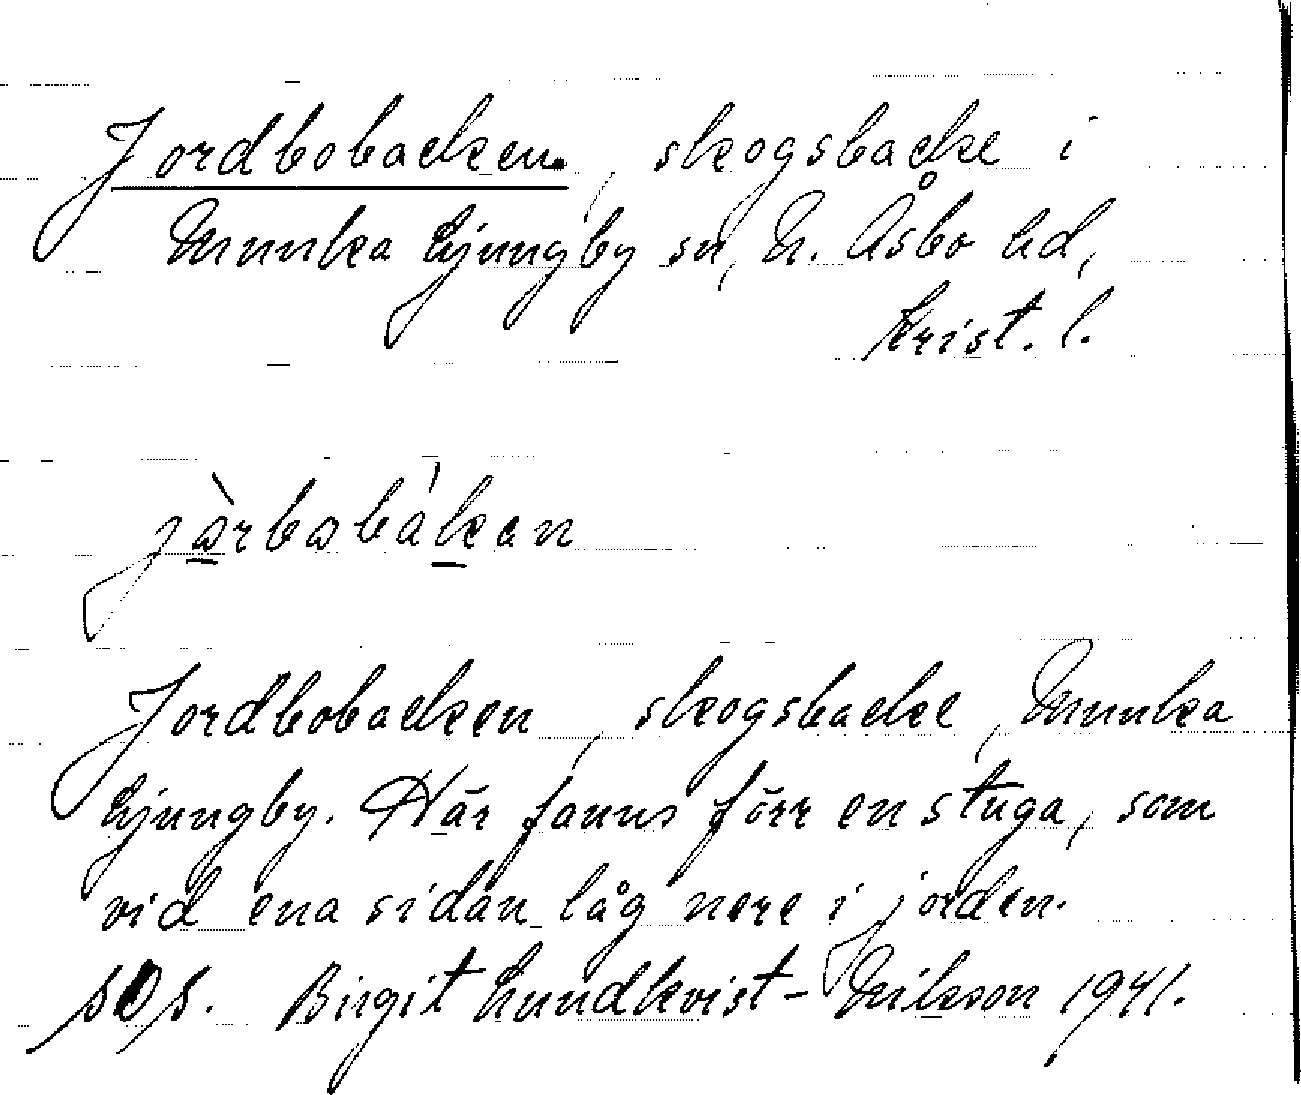 Jordbobacken, skogsbacke i
Munka Ljungby sn, N. Åsbo hd,
Krist. l.
Jordbobacken, skogsbacke, Munka
Ljungby. Här fanns förr en stuga, som
vid ena sidan låg nere i jorden.
Birgit Lundkvist-Nilsson 1941.